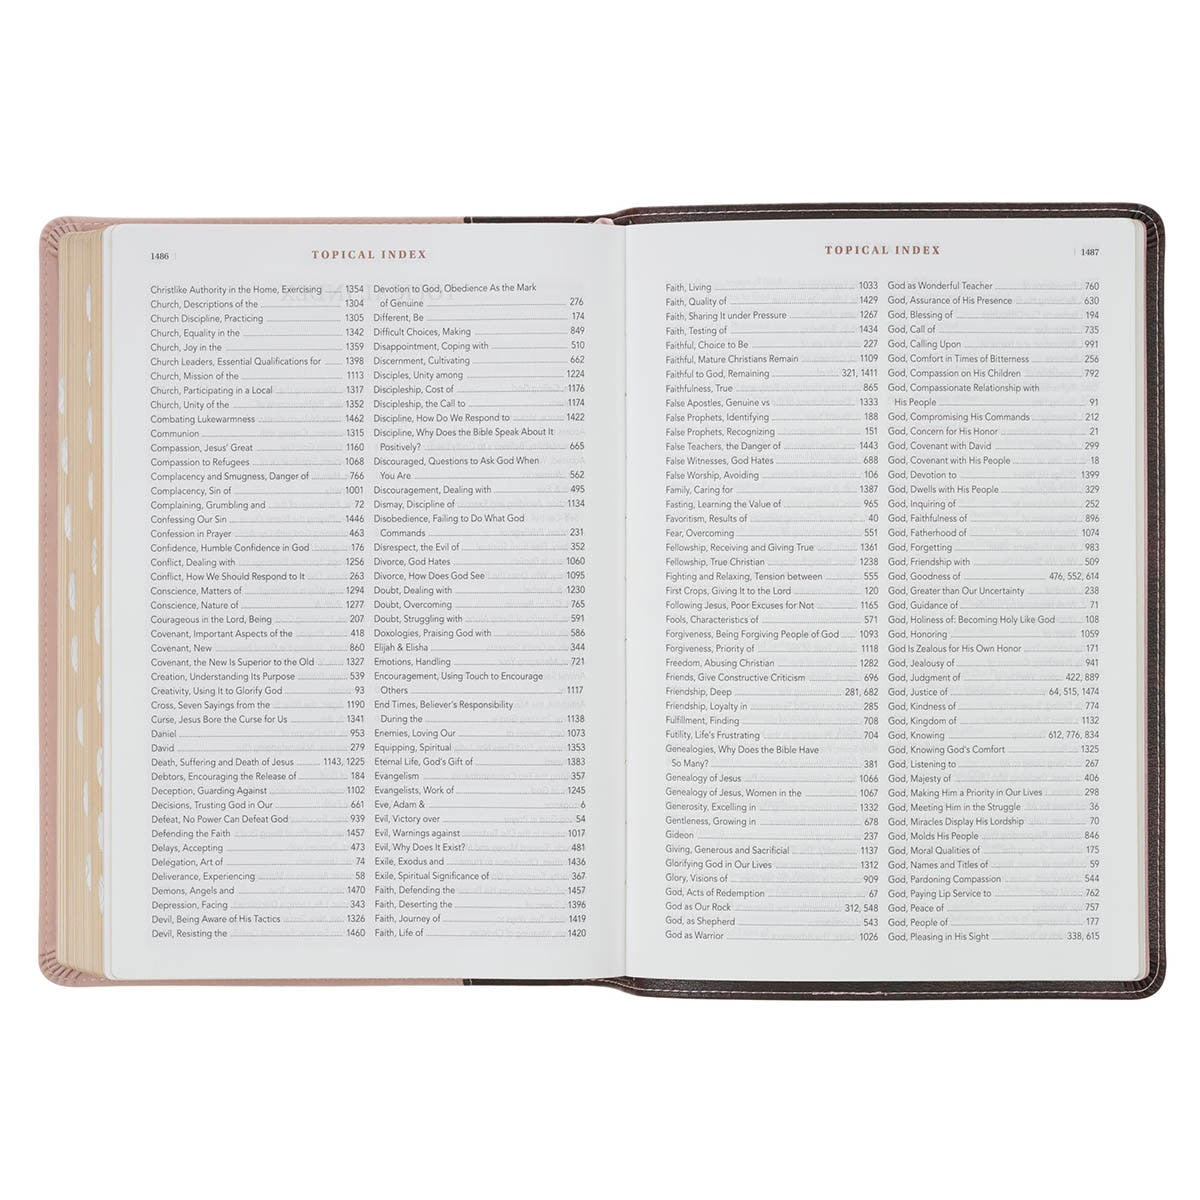 1486
TOPICAL INDEX
Christlike Authority in the Home, Exercising 1354
Church, Descriptions of the 1304
Church Discipline, Practicing 1305
Church, Equality in the 1342
Church, Joy in the 1359
Church Leaders, Essential Qualifications for 1398
Church, Mission of the 1113
Church, Participating in a Local 1317
Church, Unity of the 1352
Combating Lukewarmness 1462
Communion 1315
Compassion, Jesus' Great 1160
Compassion to Refugees 1068
Complacency and Smugness, Danger of 766
Complacency, Sin of 1001
Complaining, Grumbling and 72
Confessing Our Sin 1446
Confession in Prayer 463
Confidence, Humble Confidence in God 176
Conflict, Dealing with 1256
Conflict, How We Should Respond to It 263
Conscience, Matters of 1294
Conscience, Nature of 1277
Courageous in the Lord, Being 207
Covenant, Important Aspects of the 418
Covenant, New 860
Covenant, the New Is Superior to the Old 1327
Creation, Understanding Its Purpose 539
Creativity, Using It to Glorify God 93
Cross, Seven Sayings from the 1190
Curse, Jesus Bore the Curse for Us 1341
Daniel 953
David 279
Death, Suffering and Death of Jesus 1143, 1225
Debtors, Encouraging the Release of 184
Deception, Guarding Against 1102
Decisions, Trusting God in Our 661
Defeat, No Power Can Defeat God 939
Defending the Faith 1457
Delays, Accepting 473
Delegation, Art of 74
Deliverance, Experiencing 58
Demons, Angels and 1470
Depression, Facing 343
Devil, Being Aware of His Tactics 1326
Devil, Resisting the 1460
Devotion to God, Obedience As the Mark
of Genuine 276
Different, Be 174
Difficult Choices, Making 849
Disappointment, Coping with 510
Discernment, Cultivating 662
Disciples, Unity among 1224
Discipleship, Cost of 1176
Discipleship, the Call to 1174
Discipline, How Do We Respond to 1422
Discipline, Why Does the Bible Speak About It
Positively? 665
Discouraged, Questions to Ask God When
You Are 562
Discouragement, Dealing with 495
Dismay, Discipline of 1134
Disobedience, Failing to Do What God
Commands 231
Disrespect, the Evil of 352
Divorce, God Hates 1060
Divorce, How Does God See 1095
Doubt, Dealing with 1230
Doubt, Overcoming 765
Doubt, Struggling with 591
Doxologies, Praising God with 586
Elijah & Elisha 344
Emotions, Handling 721
Encouragement, Using Touch to Encourage
Others 1117
End Times, Believer's Responsibility
During the 1138
Enemies, Loving Our 1073
Equipping, Spiritual 1353
Eternal Life, God's Gift of 1383
Evangelism 357
Evangelists, Work of 1245
Eve, Adam & 6
Evil, Victory over 54
Evil, Warnings against 1017
Evil, Why Does It Exist? 481
Exile, Exodus and 1436
Exile, Spiritual Significance of 367
Faith, Defending the 1457
Faith, Deserting the 1396
Faith, Journey of 1419
Faith, Life of 1420
TOPICAL INDEX
1487
Faith, Living 1033
Faith, Quality of 1429
Faith, Sharing It under Pressure 1267
Faith, Testing of 1434
Faithful, Choice to Be 227
Faithful, Mature Christians Remain 1109
Faithful to God, Remaining 321, 1411
Faithfulness, True 865
False Apostles, Genuine vs 1333
False Prophets, Identifying 188
False Prophets, Recognizing 151
False Teachers, the Danger of 1443
False Witnesses, God Hates 688
False Worship, Avoiding 106
Family, Caring for 1387
Fasting, Learning the Value of 965
Favoritism, Results of 40
Fear, Overcoming 551
Fellowship, Receiving and Giving True 1361
Fellowship, True Christian 1238
Fighting and Relaxing, Tension between 555
First Crops, Giving It to the Lord 120
Following Jesus, Poor Excuses for Not 1165
Fools, Characteristics of 571
Forgiveness, Being Forgiving People of God 1093
Forgiveness, Priority of 1118
Freedom, Abusing Christian 1282
Friends, Give Constructive Criticism 696
Friendship, Deep 281, 682
Friendship, Loyalty in 285
Fulfillment, Finding 708
Futility, Life's Frustrating 704
Genealogies, Why Does the Bible Have
So Many? 381
Genealogy of Jesus 1066
Genealogy of Jesus, Women in the 1067
Generosity, Excelling in 1332
Gentleness, Growing in 678
Gideon 237
Giving, Generous and Sacrificial 1137
Glorifying God in Our Lives 1312
Glory, Visions of 909
God, Acts of Redemption 67
God as Our Rock 312, 548
God, as Shepherd 543
God as Warrior 1026
God as Wonderful Teacher 760
God, Assurance of His Presence 630
God, Blessing of 194
God, Call of 735
God, Calling Upon 991
God, Comfort in Times of Bitterness 256
God, Compassion on His Children 792
God, Compassionate Relationship with
His People 91
God, Compromising His Commands 212
God, Concern for His Honor 21
God, Covenant with David 299
God, Covenant with His People 18
God, Devotion to 1399
God, Dwells with His People 329
God, Inquiring of 252
God, Faithfulness of 896
God, Fatherhood of 1074
God, Forgetting 983
God, Friendship with 509
God, Goodness of 476, 552, 614
God, Greater than Our Uncertainty 238
God, Guidance of 71
God, Holiness of: Becoming Holy Like God 108
God, Honoring 1059
God Is Zealous for His Own Honor 171
God, Jealousy of 941
God, Judgment of 422, 889
God, Justice of 64, 515, 1474
God, Kindness of 774
God, Kingdom of 1132
God, Knowing 612, 776, 834
God, Knowing God's Comfort 1325
God, Listening to 267
God, Majesty of 406
God, Making Him a Priority in Our Lives 298
God, Meeting Him in the Struggle 36
God, Miracles Display His Lordship 70
God, Molds His People 846
God, Moral Qualities of 175
God, Names and Titles of 59
God, Pardoning Compassion 544
God, Paying Lip Service to 762
God, Peace of 757
God, People of 177
God, Pleasing in His Sight 338, 615